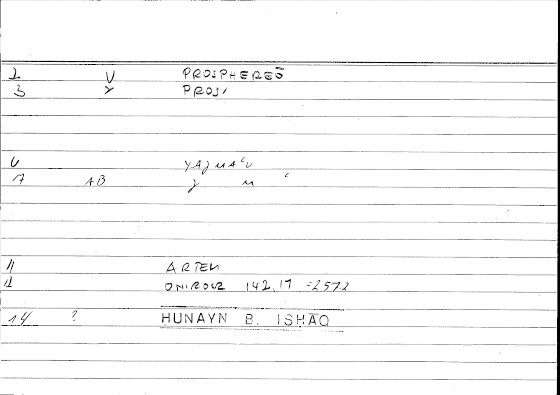 2 V PROSPHEREŌ
3 Y PROS/
6 YAJMAʿU
7 AB J M ʿ
11 ARTEM
12 ONIROCR 142,17 =2572
14 ? HUNAYN B. ISHĀQ